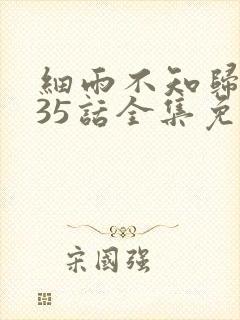 細雨不知歸
35話全集免
宋國强